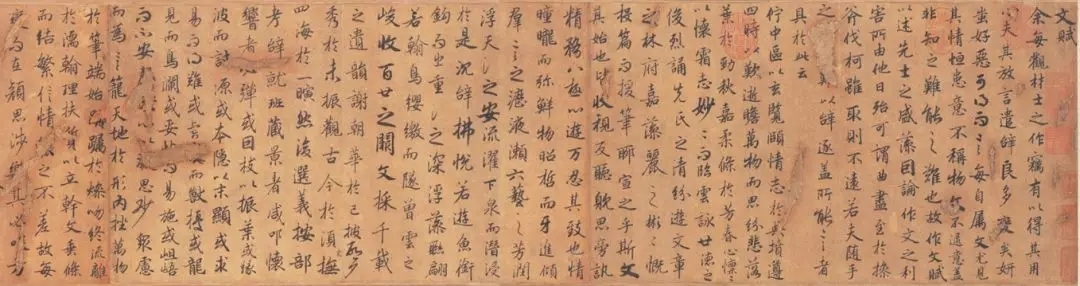 文賦
余每觀材士之作竊有以得其用
心夫其放言遣辭良多變矣妍
蚩好惡可得而言每自属文尤見
其情恒患意不稱物文不逮意盖
非知之難能之難也故作文賦
以述先士之盛藻因論作文之利
害所由他日殆可謂曲盡至於操
斧伐柯雖取則不遠若夫隨手
之以辭逐盖所能言者
具於此云
佇中區以玄覽頤情志於典墳遵
四時以歎逝瞻萬物而思紛悲落
葉於勁秋嘉柔條於芳春心懍〻
以懷霜志妙〻而臨雲詠世德之
俊烈誦先氏之清紛遊文章
之林府嘉藻麗之彬〻慨
投篇而援筆聊宣之乎斯文
其始也皆收視反聽耽思旁訊
精務八極心遊万忍其致也情
曈曨而弥鮮物昭晢而互進傾
羣言之瀝液漱六藝之芳潤
浮天淵之安流濯下泉而潛浸
於是沉辭怫悅若遊魚銜
鈎而出重淵之深浮藻聯翩
若翰鳥纓繳而墜曾雲之
峻收百世之闕文採千載
之遺韻謝朝華於已披啟夕
秀於未振觀古今於須撫
四海於一瞬然後選義按部
考辭就班景者咸叩懷
響者必彈或因枝以振葉或緣
波而討源或本隱以末顯或求
易而得難或而獸擾或龍
見而鳥瀾或妥帖而易施或岨峿
而不安思眇眾慮
而為言籠天地於形內挫萬物
於筆端始躑躅於燥吻終流離
於濡翰理扶質以立幹文垂條
而結繁信情之不差故每
變而在顏思涉樂其必笑方